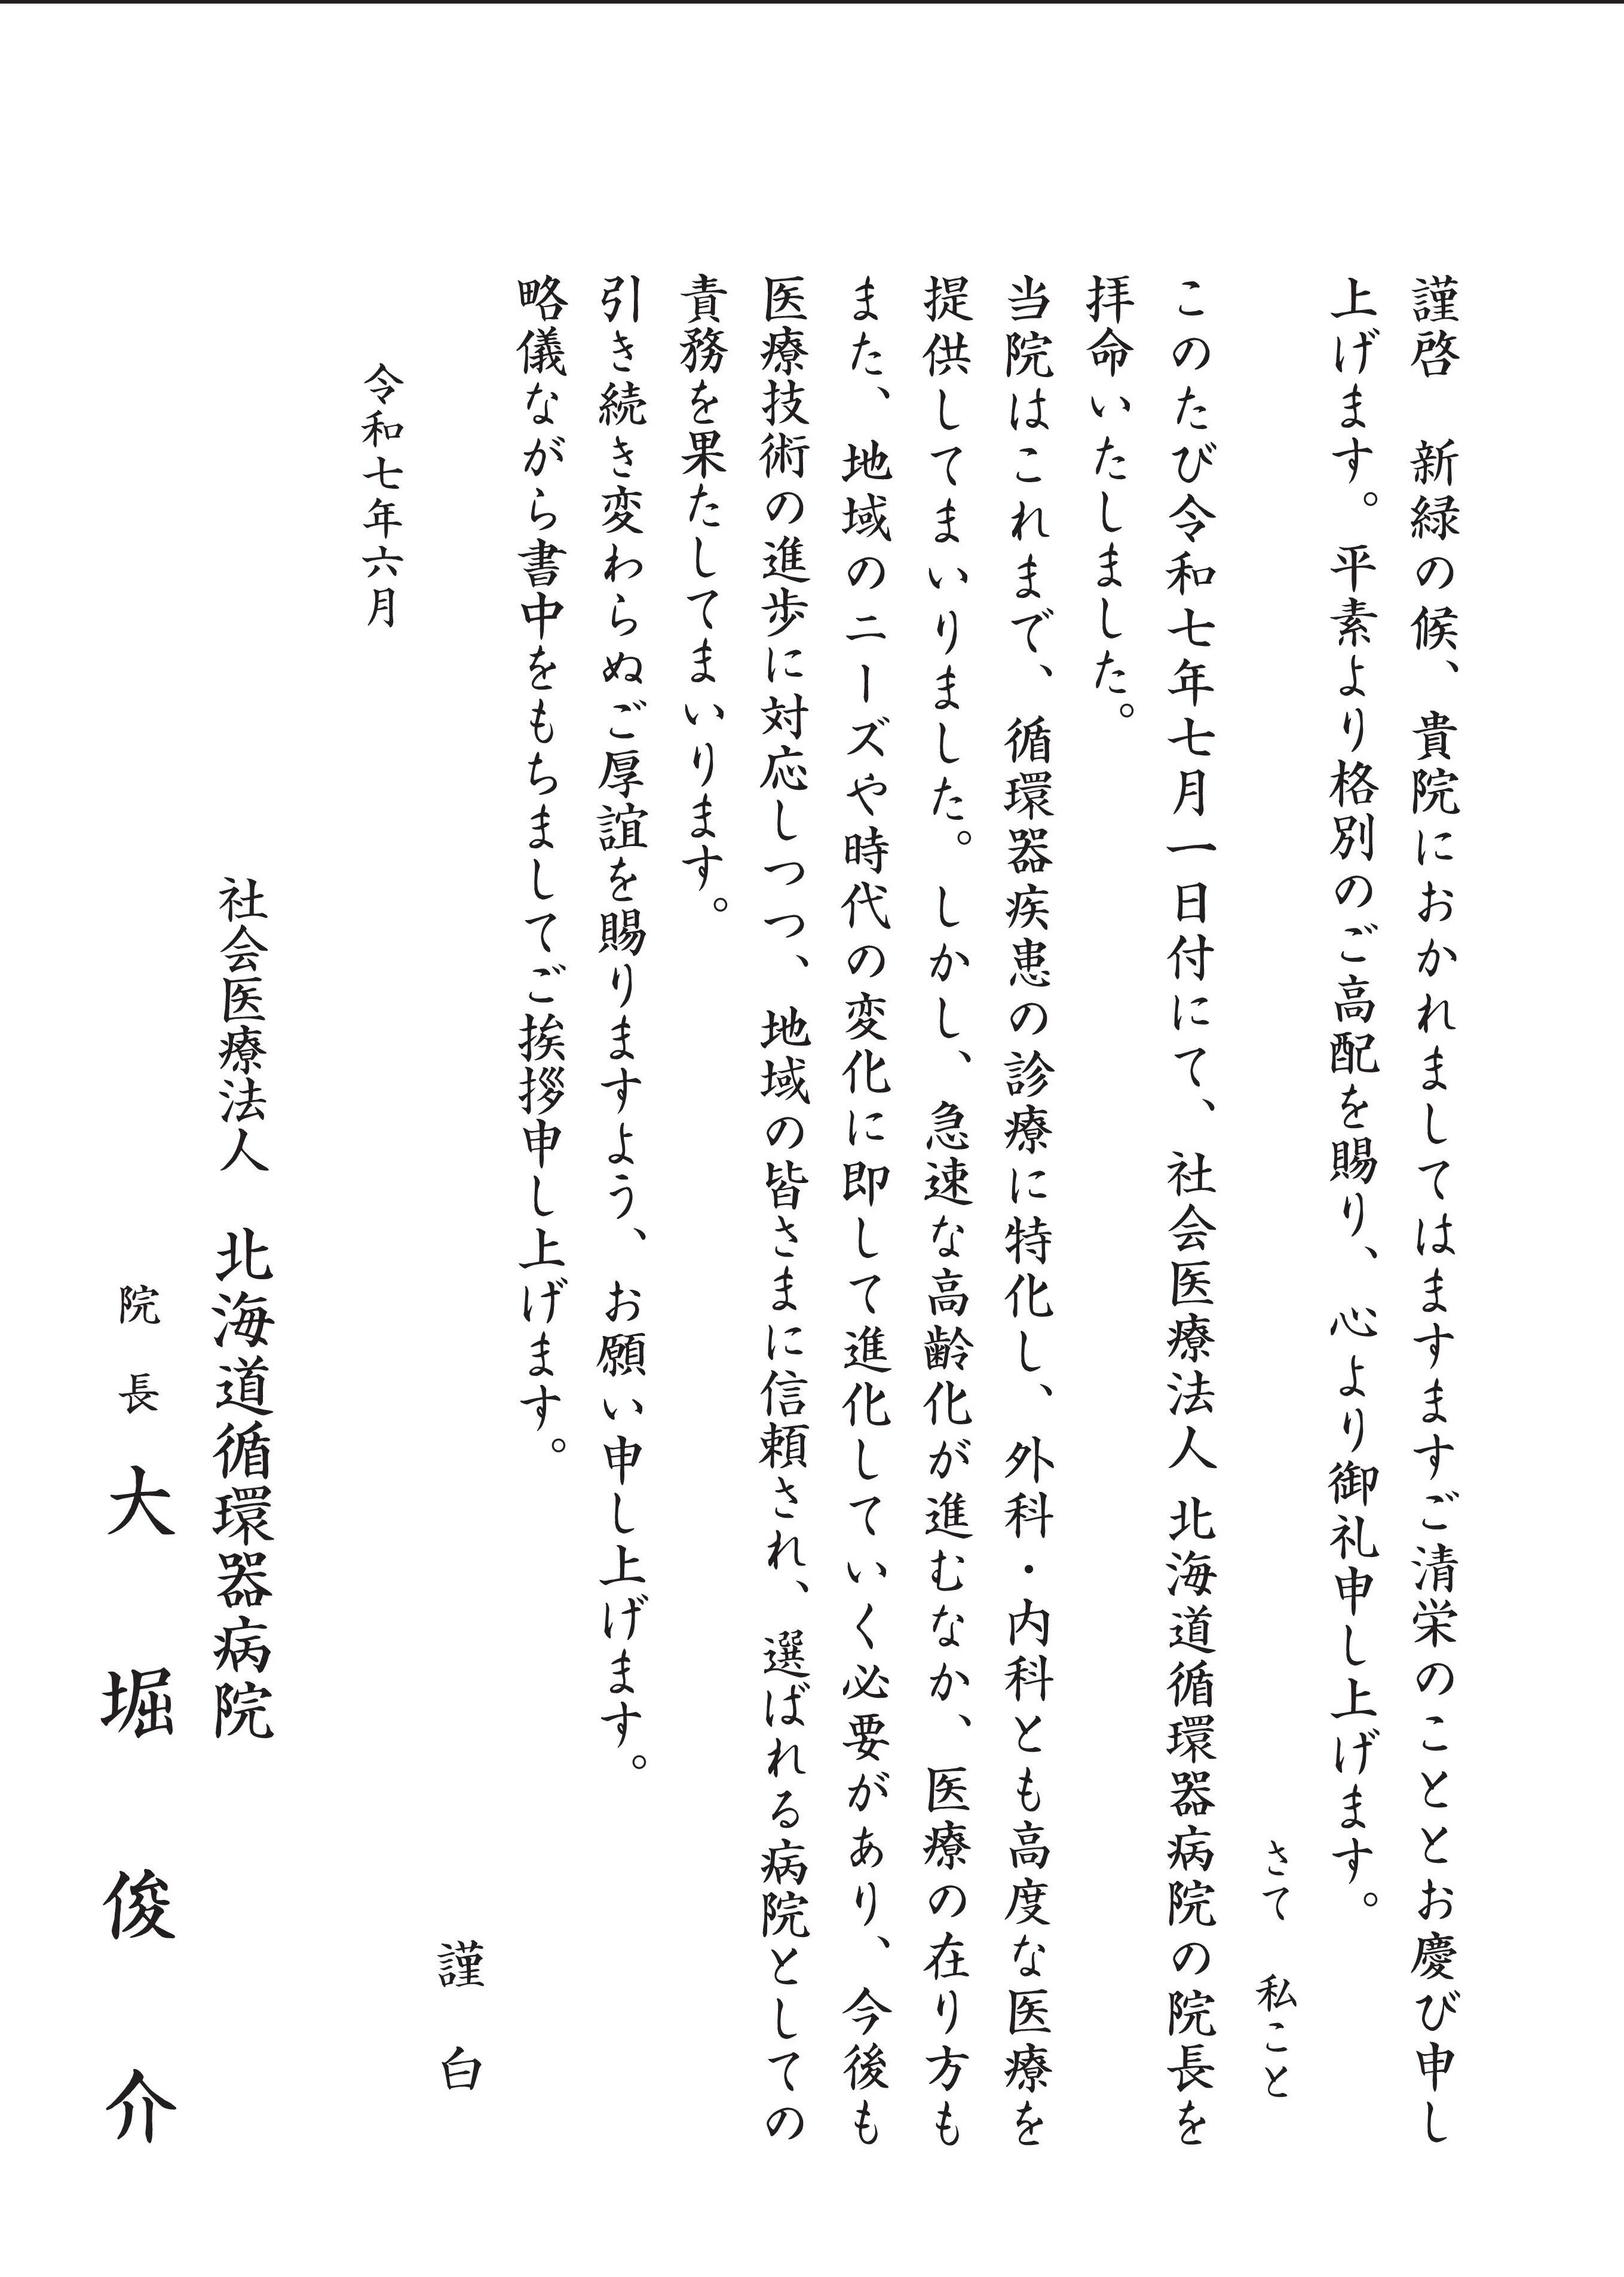 謹啓　新緑の候、貴院におかれましてはますますご清栄のこととお慶び申し
上げます。平素より格別のご高配を賜り、心より御礼申し上げます。
さて　私こと
このたび令和七年七月一日付にて、社会医療法人 北海道循環器病院の院長を
拝命いたしました。
当院はこれまで、循環器疾患の診療に特化し、外科・内科とも高度な医療を
提供してまいりました。しかし、急速な高齢化が進むなか、医療の在り方も
また、地域のニーズや時代の変化に即して進化していく必要があり、今後も
医療技術の進歩に対応しつつ、地域の皆さまに信頼され、選ばれる病院としての
責務を果たしてまいります。
引き続き変わらぬご厚誼を賜りますよう、お願い申し上げます。
略儀ながら書中をもちましてご挨拶申し上げます。
謹　白
令和七年六月
社会医療法人　北海道循環器病院
院　長　大　堀　俊　介